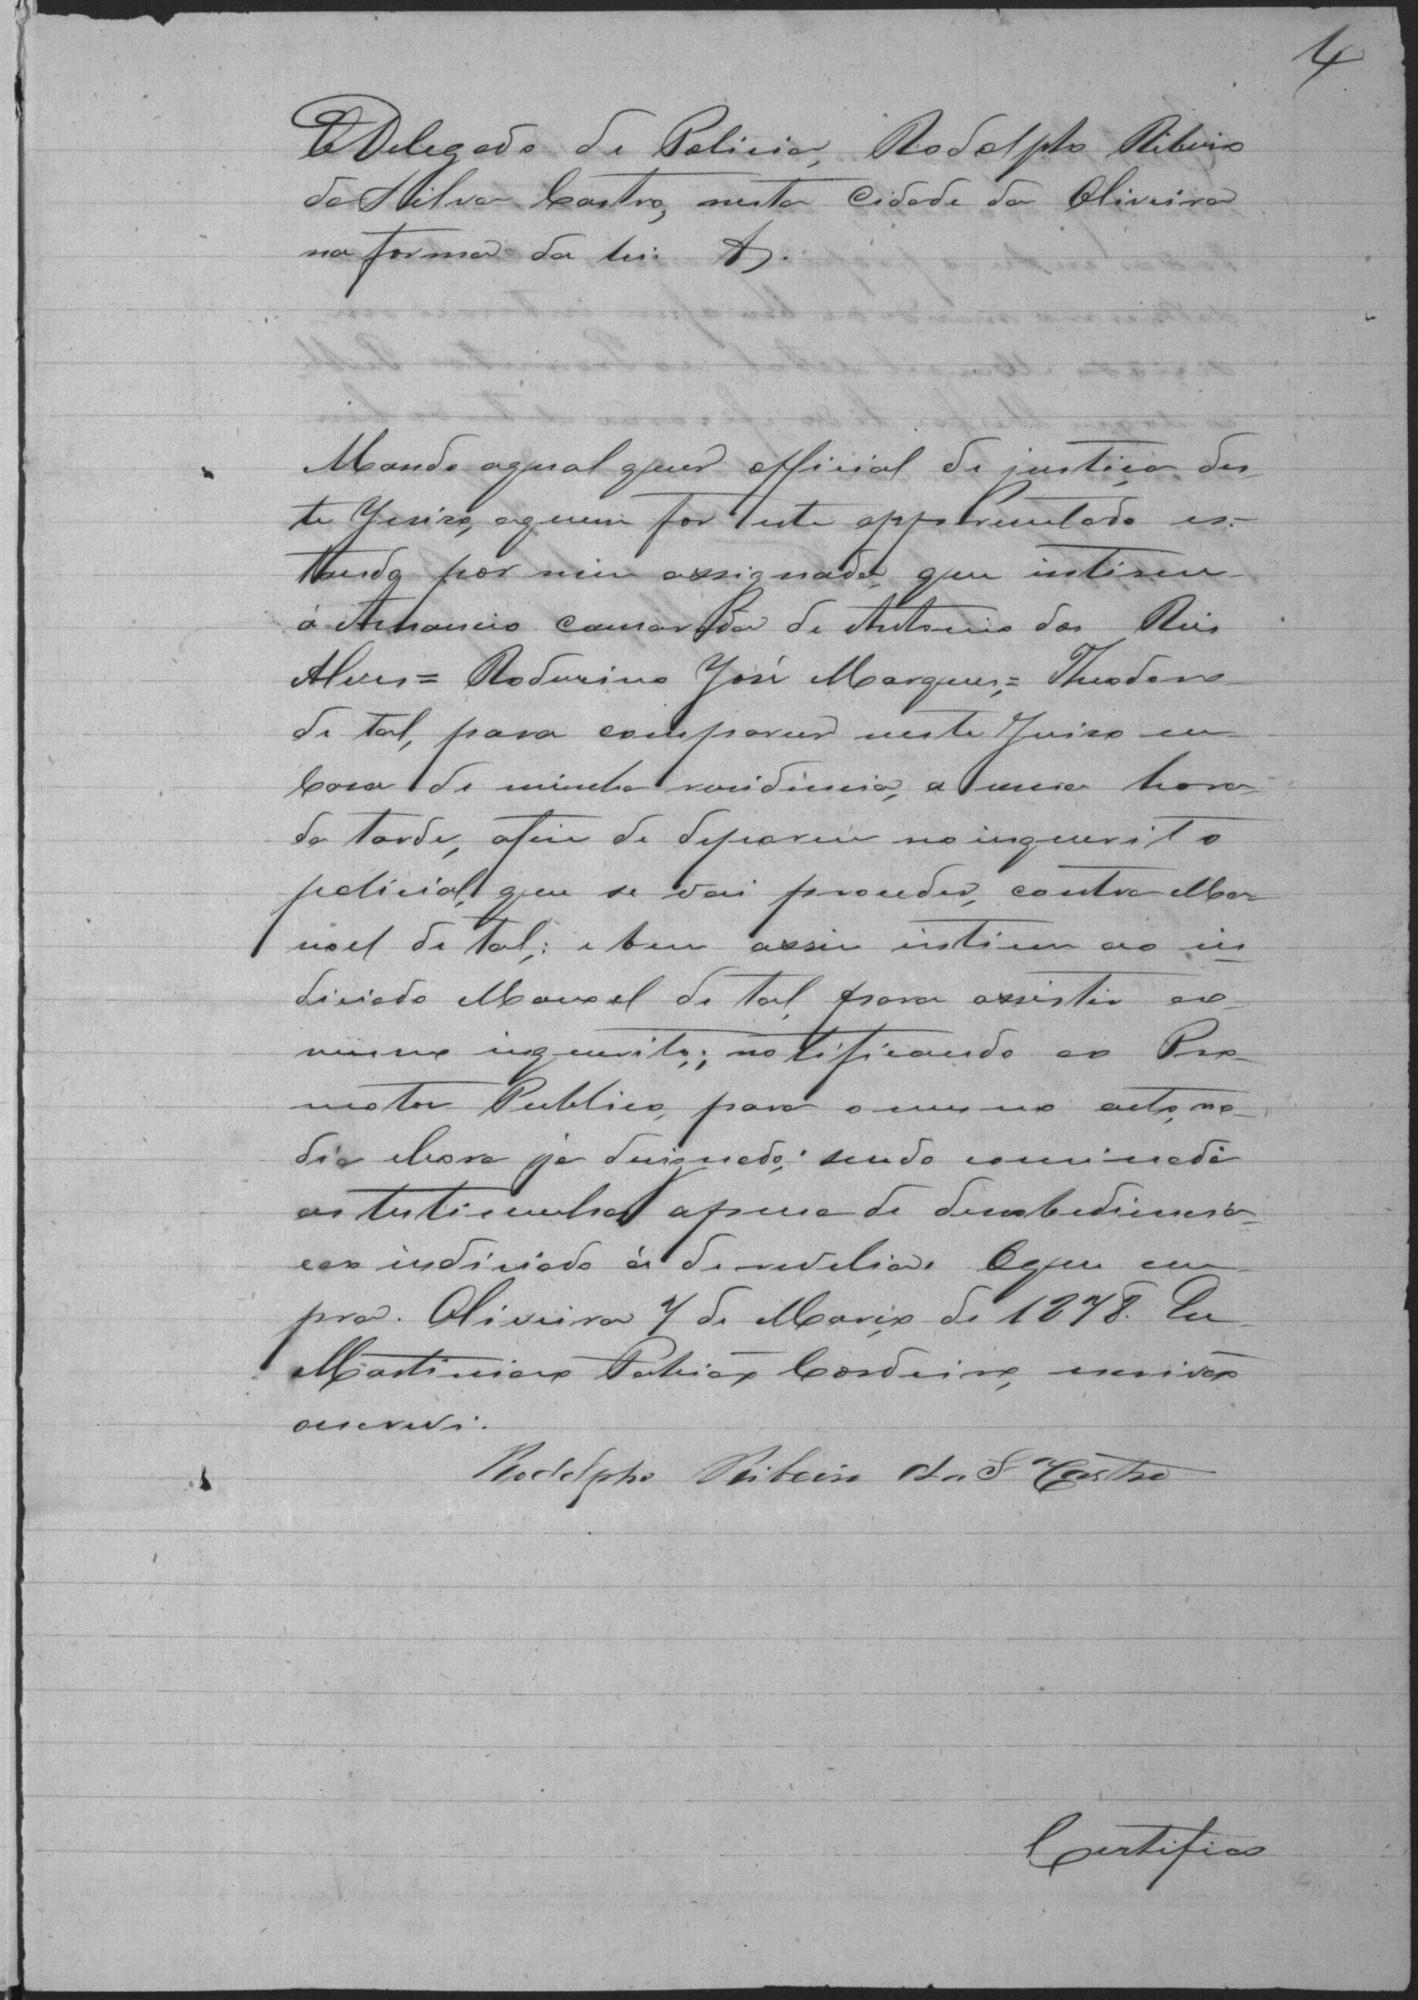 4
O Delegado de Policia, Rodolpho Ribeiro
da Silva Castro, nesta Cidade da Oliveira
na forma da lei. &.
Mando aqual quer official de justiça des
te Juizo, aquem for este appresentado es-
tando por mim assignado, que intimem
á Amancio camarada de Antonio dos Reis
Alves= José Marques,= Theodoro
de tal, para comparecer neste Juizo em
Casa de minha residencia, a uma hora
da tarde, afim de deporem no inquerito
policial, que se vai proceder, contra Ma
noel de tal,: e bem assim intimem ao in
diciado Manoel de tal, para assistir ao
mesmo inquerito,; notificando ao Pro-
motor Publico, para o mesmo acto, no
dia ehora já designado; sendo cominada
as testimunhas apena de desobediencia
eao indiciado á de revelia. Oque cum-
pra. Oliveira 7 de Março de 1878. Eu
Martiniano Cordeiro, escrivão
oescrevi.
Rodolpho Ribeiro da Sª Castro
Certifico